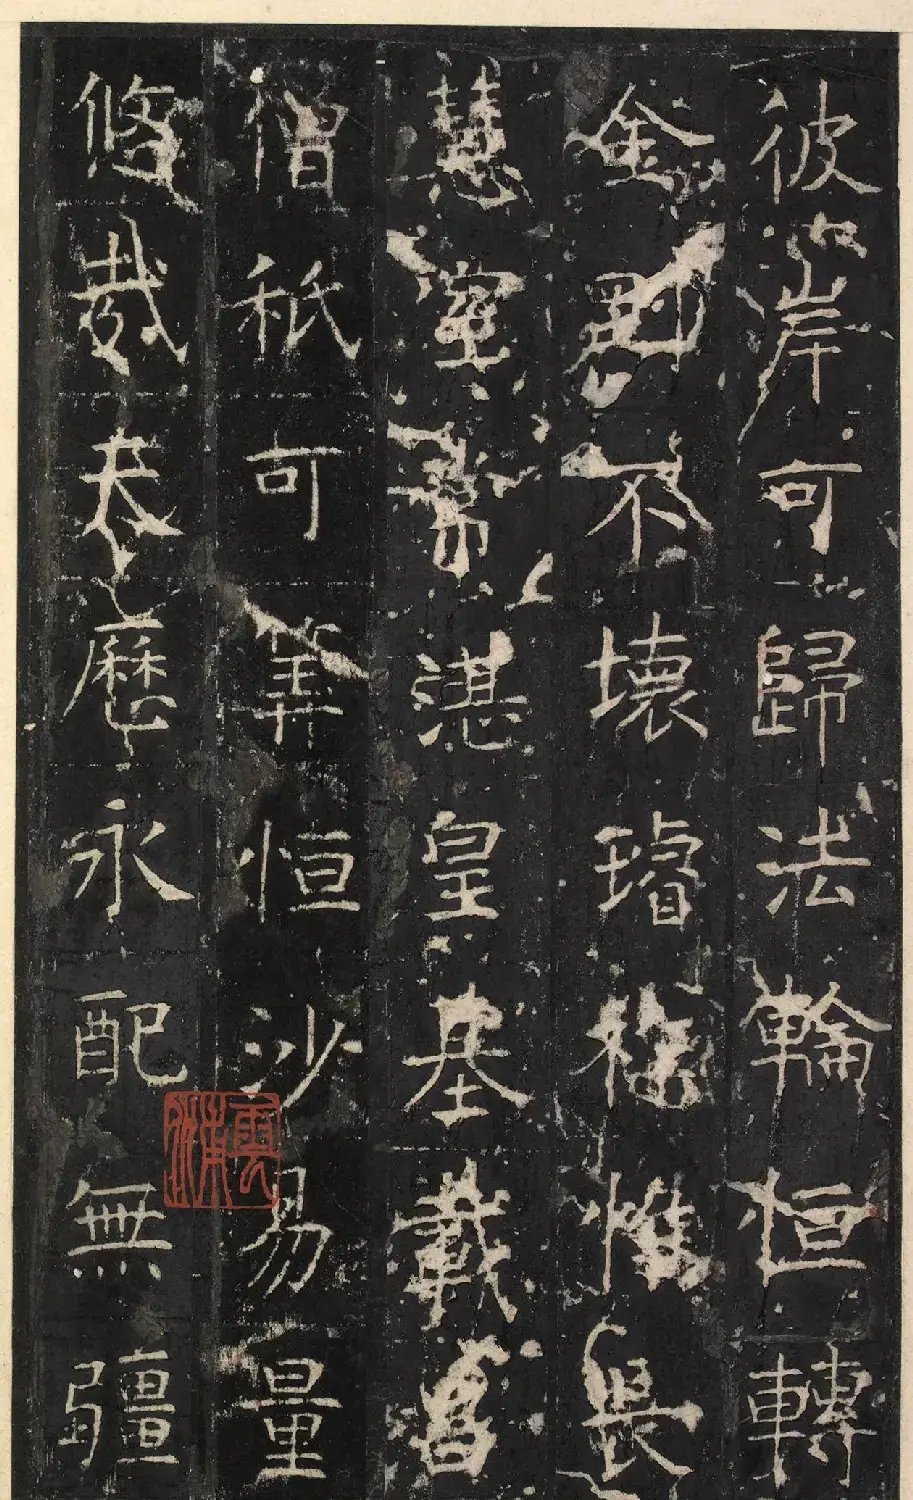 彼岸可歸法輪恒轉
金剛不壞璿極惟長
慧室常湛皇基載昌
僧祇可筭恒沙易量
悠哉歷永配無疆